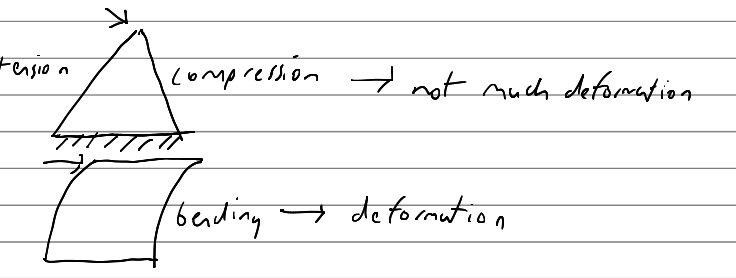 tension compression → not much deformation
bending → deformation